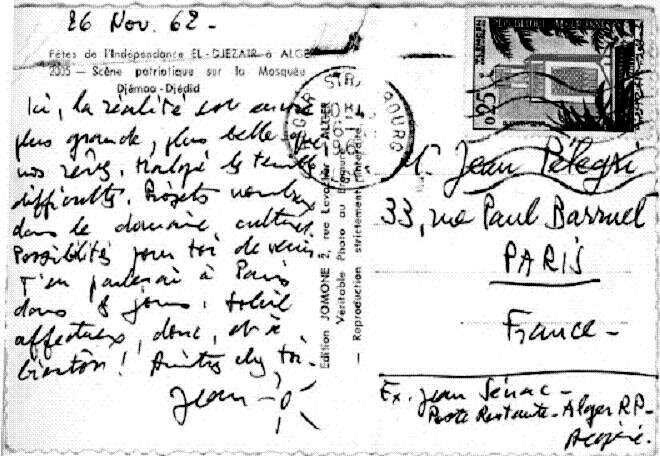 26 Nov. 62 -
Fêtes de l'Indépendance EL-DJEZAIR à ALGER
2005 - Scène patriotique sur la Mosquée
Djêmaa-Djédid
Ici, la réalité est encore
plus grande, plus belle que
nos rêves. Malgré les terribles
difficultés. Projets nombreux
dans le domaine culturel.
Possibilités pour toi de venir.
T'en parlerai à Paris
dans 8 jours. Soleil
affectueux, donc, et à
bientôt! Amitiés chez toi.
Jean
Edition JOMONE 2, rue ALGER
Véritable Photo au
- Reproduction strictement interdite.
ALGER STRASBOURG
REPUBLIQUE ALGERIENNE
0.25
M. Jean Pélégri
33, rue Paul Barruel
PARIS
France -
Ex. Jean Sénac -
Poste Restante - Alger RP -
Algérie.